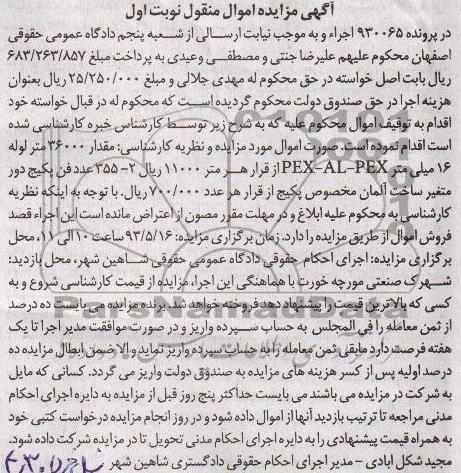 آگهی مزایده اموال منقول نوبت اول
در پرونده ۹۳۰۰۶۵ اجراء و به موجب نیابت ارسالی از شعبه پنجم دادگاه عمومی حقوقی
اصفهان محکوم علیهم علیرضا جنتی و مصطفی وعیدی به پرداخت مبلغ ۶۸۳/۲۶۳/۸۵۷
ریال بابت اصل خواسته در حق محکوم له مهدی جلالی و مبلغ ۲۵/۲۵۰/۰۰۰ ریال بعنوان
هزینه اجرا در حق صندوق دولت محکوم گردیده است که محکوم له در قبال خواسته خود
اقدام به توقیف اموال محکوم علیه که به شرح زیر توسط کارشناس خبره کارشناسی شده
است اقدام نموده است. صورت اموال مورد مزایده و نظریه کارشناسی: مقدار ۳۶۰۰۰ متر لوله
۱۶ میلی متر PEX-AL-PEX از قرار هر متر ۱۱۰۰۰ ریال ۲- ۲۵۵ عدد فن پکیج دور
متغیر ساخت آلمان مخصوص پکیج از قرار هر عدد ۷۰۰/۰۰۰ ریال. با توجه به اینکه نظریه
کارشناسی به محکوم علیه ابلاغ و در مهلت مقرر مصون از اعتراض مانده است این اجراء قصد
فروش اموال از طریق مزایده را دارد. زمان برگزاری مزایده: ۹۳/۵/۱۶ ساعت ۱۰ الی ۱۱، محل
برگزاری مزایده: اجرای احکام حقوقی دادگاه عمومی حقوقی شاهین شهر، محل بازدید:
شهرک صنعتی مورچه خورت با هماهنگی این اجرا، مزایده از قیمت کارشناسی شروع و به
کسی که بالاترین قیمت را پیشنهاد دهد فروخته خواهد شد. برنده مزایده می بایست ده درصد
از ثمن معامله را فی المجلس به حساب سپرده واریز و در صورت موافقت مدیر اجرا تا یک
هفته فرصت دارد مابقی ثمن معامله را به حساب سپرده واریز نماید و الا ضمن ابطال مزایده ده
درصد اولیه پس از کسر هزینه های مزایده به صندوق دولت واریز می گردد. کسانی که مایل
به شرکت در مزایده می باشند می بایست حداکثر پنج روز قبل از مزایده به دایره اجرای احکام
مدنی مراجعه تا ترتیب بازدید آنها از اموال داده شود و در روز انجام مزایده درخواست کتبی خود
به همراه قیمت پیشنهادی را به دایره اجرای احکام مدنی تحویل تا در مزایده شرکت داده شود.
مجید شکل آبادی - مدیر اجرای احکام حقوقی دادگستری شاهین شهر
ParsNamadData